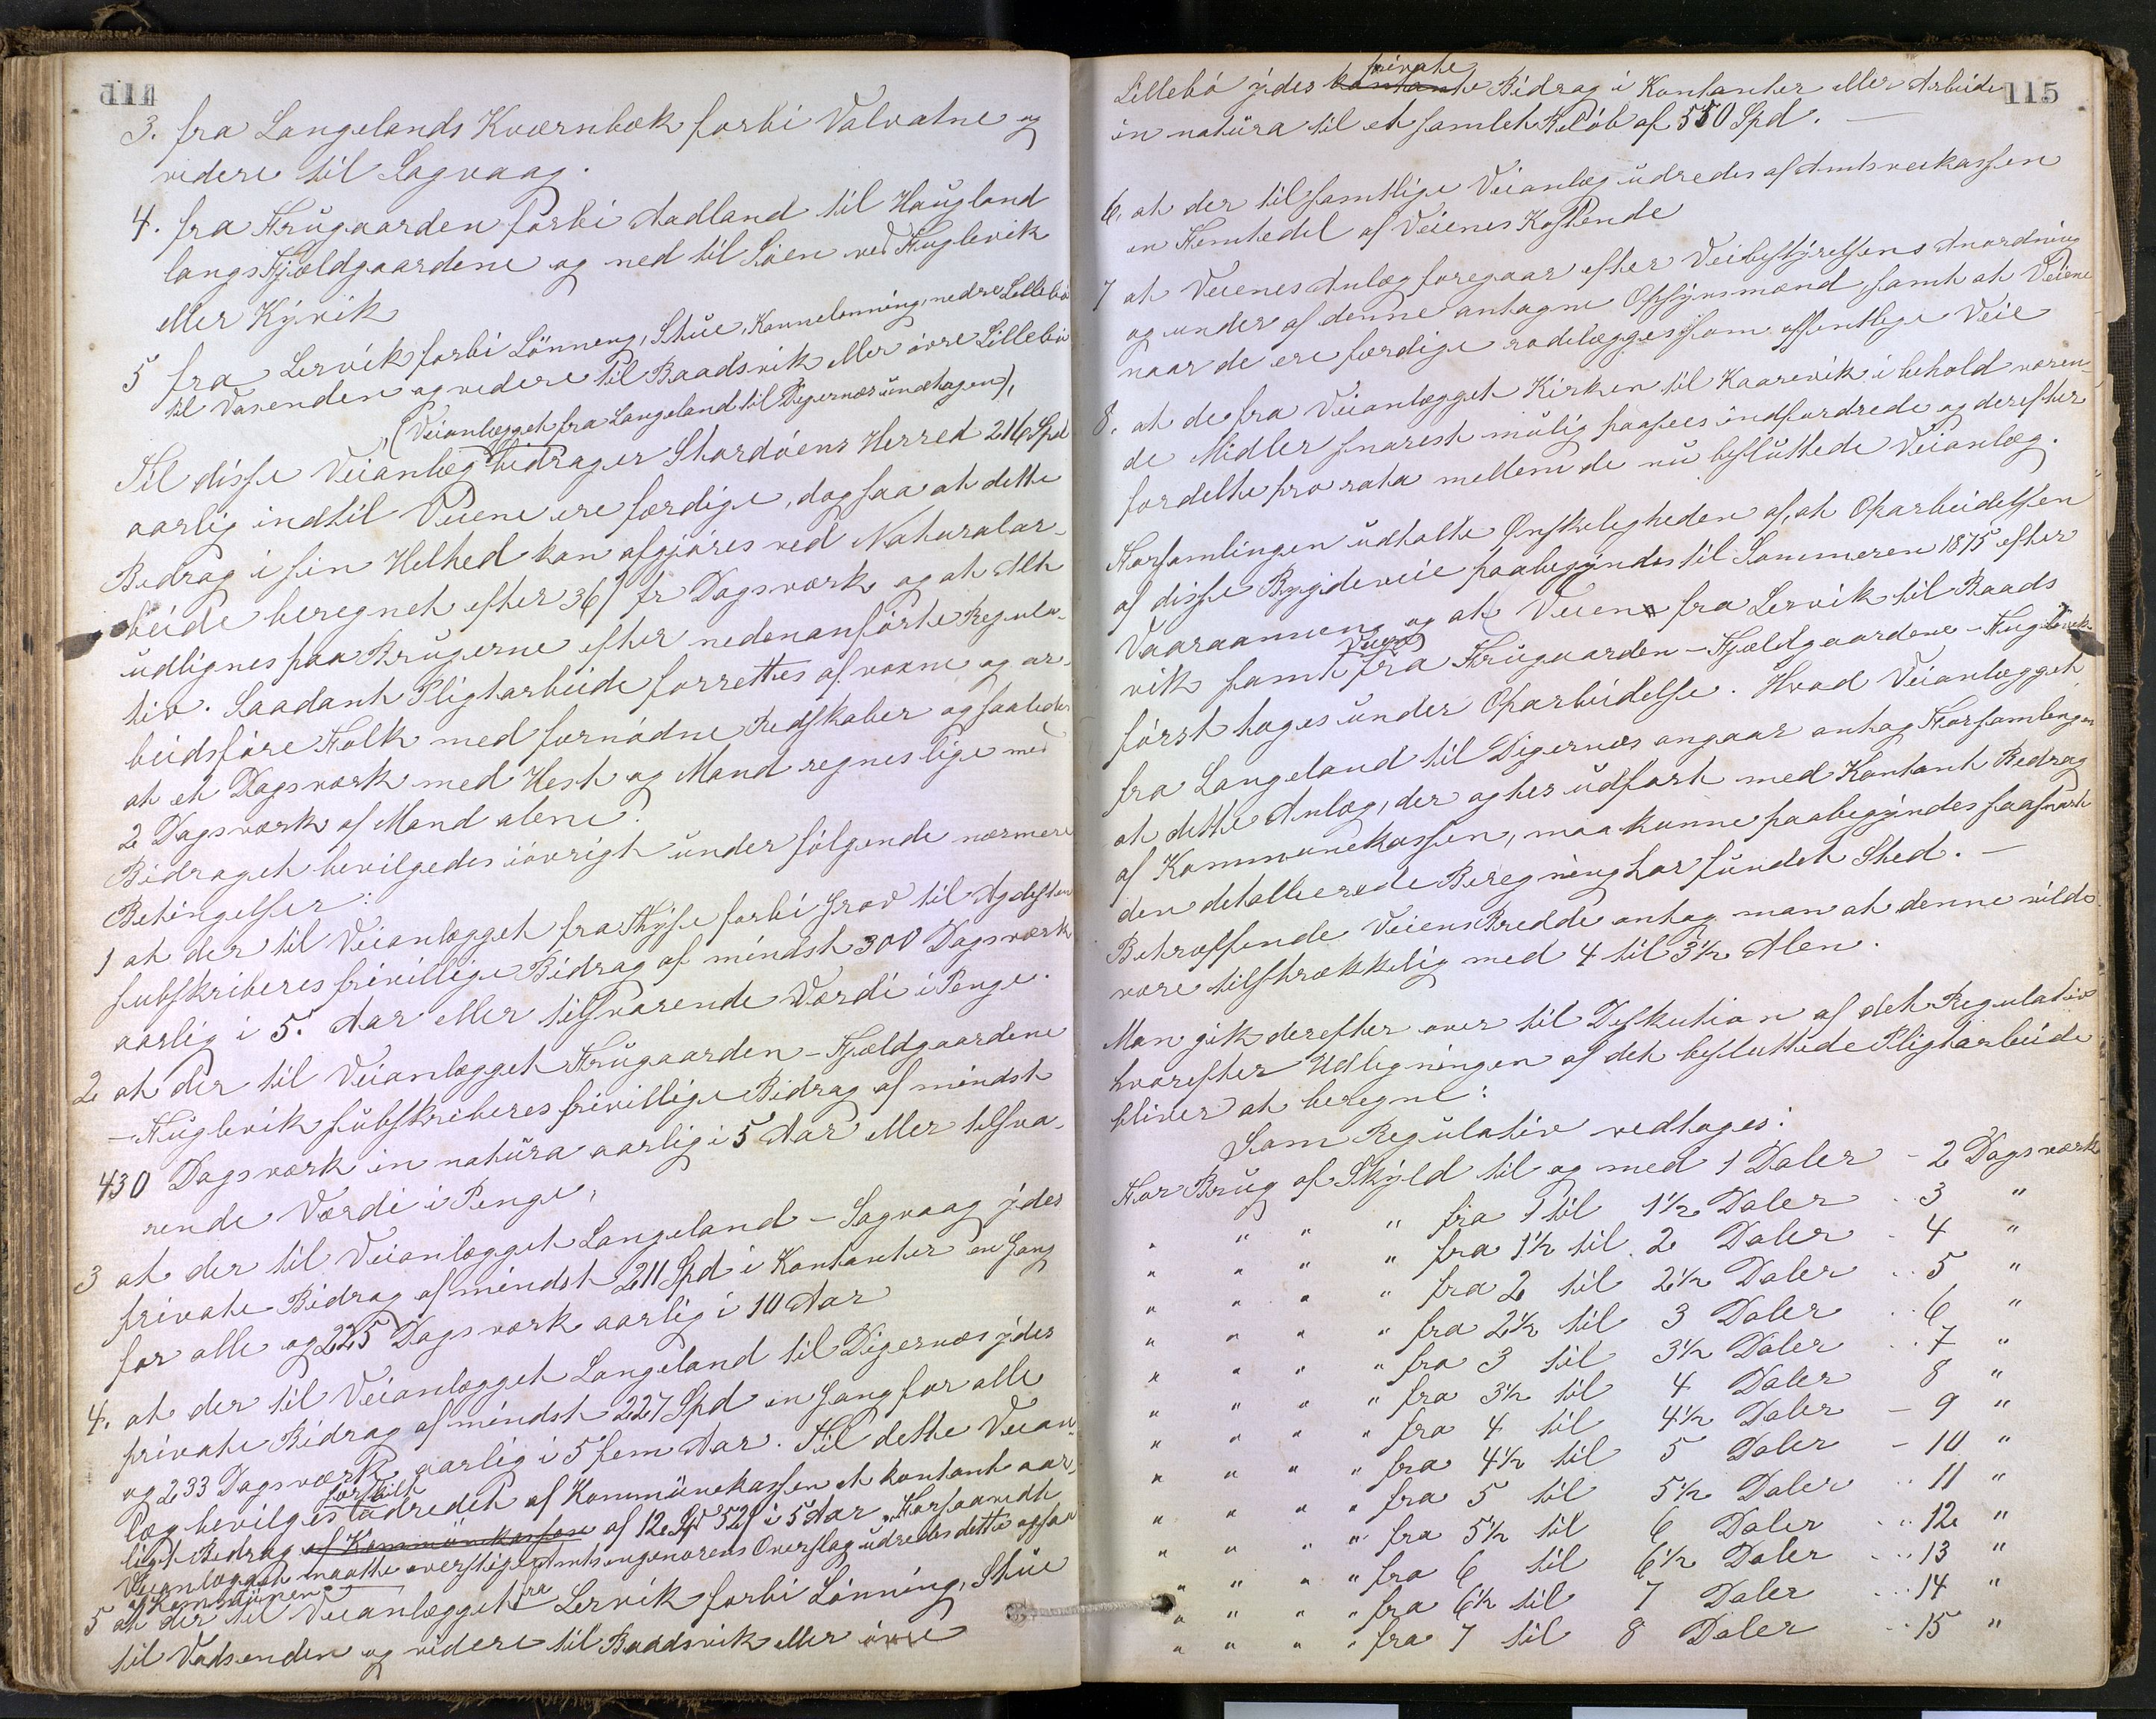 114
3. fra Langelands Kværnbæk forbi Valvatne og
videre til Sagvaag.
4. fra Frugaarden forbi Aadland til Haugland
langs Fjældgaardene og ned til Søen ved Fuglevik
eller Kyvik
5 fra Lervik forbi Lönneng, Stue, Kannelønning, nedre Lillebø
til Vasenden og videre til Baadsvik eller övre Lillebö
(Veianlægget fra Langeland til Digernæs undtagen),
Til disse Veianlæg bidrager Stordöens Herred 216 Spd
aarlig indtil Veiene ere færdige, dog saa at dette
Bidrag i sin Helhed kan afgjöres ved Naturalar-
beide beregnet efter 36 s pr Dagsværk og at Alt
udlignes paa Brugerne efter nedenanförte Regula-
tiv. Saadant Pligtarbeide forrettes af voxne og ar-
beidsföre Folk med fornödne Redskaber og saaledes
at et Dagsværk med Hest og Mand regnes lige med
2 Dagsværk af Mand alene.
Bidraget bevilgedes iövrigt under fölgende nærmere
Betingelser:
1 at der til Veianlægget fra Hyse forbi Grov til Agdesten
subskriberes frivillige Bidrag af mindst 300 Dagsværk
aarlig i 5. Aar eller tilsvarende Værdi i Penge.
2 at der til Veianlægget Frugaarden - Fjældgaardene
- Fuglevik subskriberes frivillige Bidrag af mindst
430 Dagsværk in natura aarlig i 5 Aar eller tilsva-
rende Værdi i Penge,
3 at der til Veianlægget Langeland - Sagvaag ydes
private Bidrag af mindst 211 Spd i Kontanter en Gang
for alle og 225 Dagsværk aarlig i 10 Aar
4. at der til Veianlægget Langeland til Digernæs ydes
private Bidrag af mindst 227 Spd en Gang for alle
og 233 Dagsværk aarlig i 5 fem Aar. Til dette Veian-
læg bevilges udredet af Kommunekassen et kontant aar-
ligt Bidrag af Kommunekassen af 12 Spd 52 s i 5 Aar. Forsaavidt
Veianlægget maatte overstige Amtsingeniörens Overslag udredes dette ogsaa
af Kommunen
5 at der til Veianlægget fra Lervik forbi Lönning, Stue
til Vadsenden og videre til Baadsvik eller övre
115
private
Lillebö ydes kontante Bidrag i Kontanter eller Arbeide
in natura til et samlet Belöb af 550 Spd. —
6, at der til samtlige Veianlæg udredes af Amtsveikassen
en Femtedel af Veienes Kostende
7 at Veienes Anlæg foregaar efter Veibestyrelsens Anordning
og under af denne antagne Opsynsmænd samt at Veiene
naar de ere færdige rodelægges som offentlige Veie
8, at de fra Veianlægget Kirken til Kaarevik i behold væren-
de Midler snarest mulig paasees indfordrede og derefter
fordelte pro rata mellem de nu besluttede Veianlæg.
Forsamlingen udtalte Ønskeligheden af, at Oparbeidelsen
af disse Bygdeveie paabegyndes til Sommeren 1875 efter
Vaaraannen og at Veien fra Lervik til Baads
vik samt Veien fra Frugaarden - Fjældgaardene - Fuglevik
först tages under Oparbeidelse. Hvad Veianlægget
fra Langeland til Digernæs angaar antog Forsamlingen
at dette Anlæg, der agtes udfört med Kontant Bidrag
af Kommunekassen, maa kunne paabegyndes saasnart
den detallierede Beregning har fundet Sted. —
Betræffende Veiens Bredde antog man at denne vilde
være tilstrækkelig med 4 til 3½ Alen.
Man gik derefter over til Diskution af det Regulativ
hvorefter Udligningen af det besluttede Pligtarbeide
bliver at beregne:
Som Regulativ vedtoges:
For Brug af Skyld til og med 1 Daler - 2 Dagsværk
" " " " fra 1 til 1½ Daler .. 3 "
" " " " fra 1½ til 2 Daler .. 4 "
" " " " fra 2 til 2½ Daler .. 5 "
" " " " fra 2½ til 3 Daler .. 6 "
" " " " fra 3 til 3½ Daler .. 7 "
" " " " fra 3½ til 4 Daler 8 "
" " " " fra 4 til 4½ Daler - 9 "
" " " " fra 4½ til 5 Daler - 10 "
" " " " fra 5 til 5½ Daler .. 11 "
" " " " fra 5½ til 6 Daler .. 12 "
" " " " fra 6 til 6½ Daler .. 13 "
" " " " fra 6½ til 7 Daler .. 14 "
" " " " fra 7 til 8 Daler .. 15 "